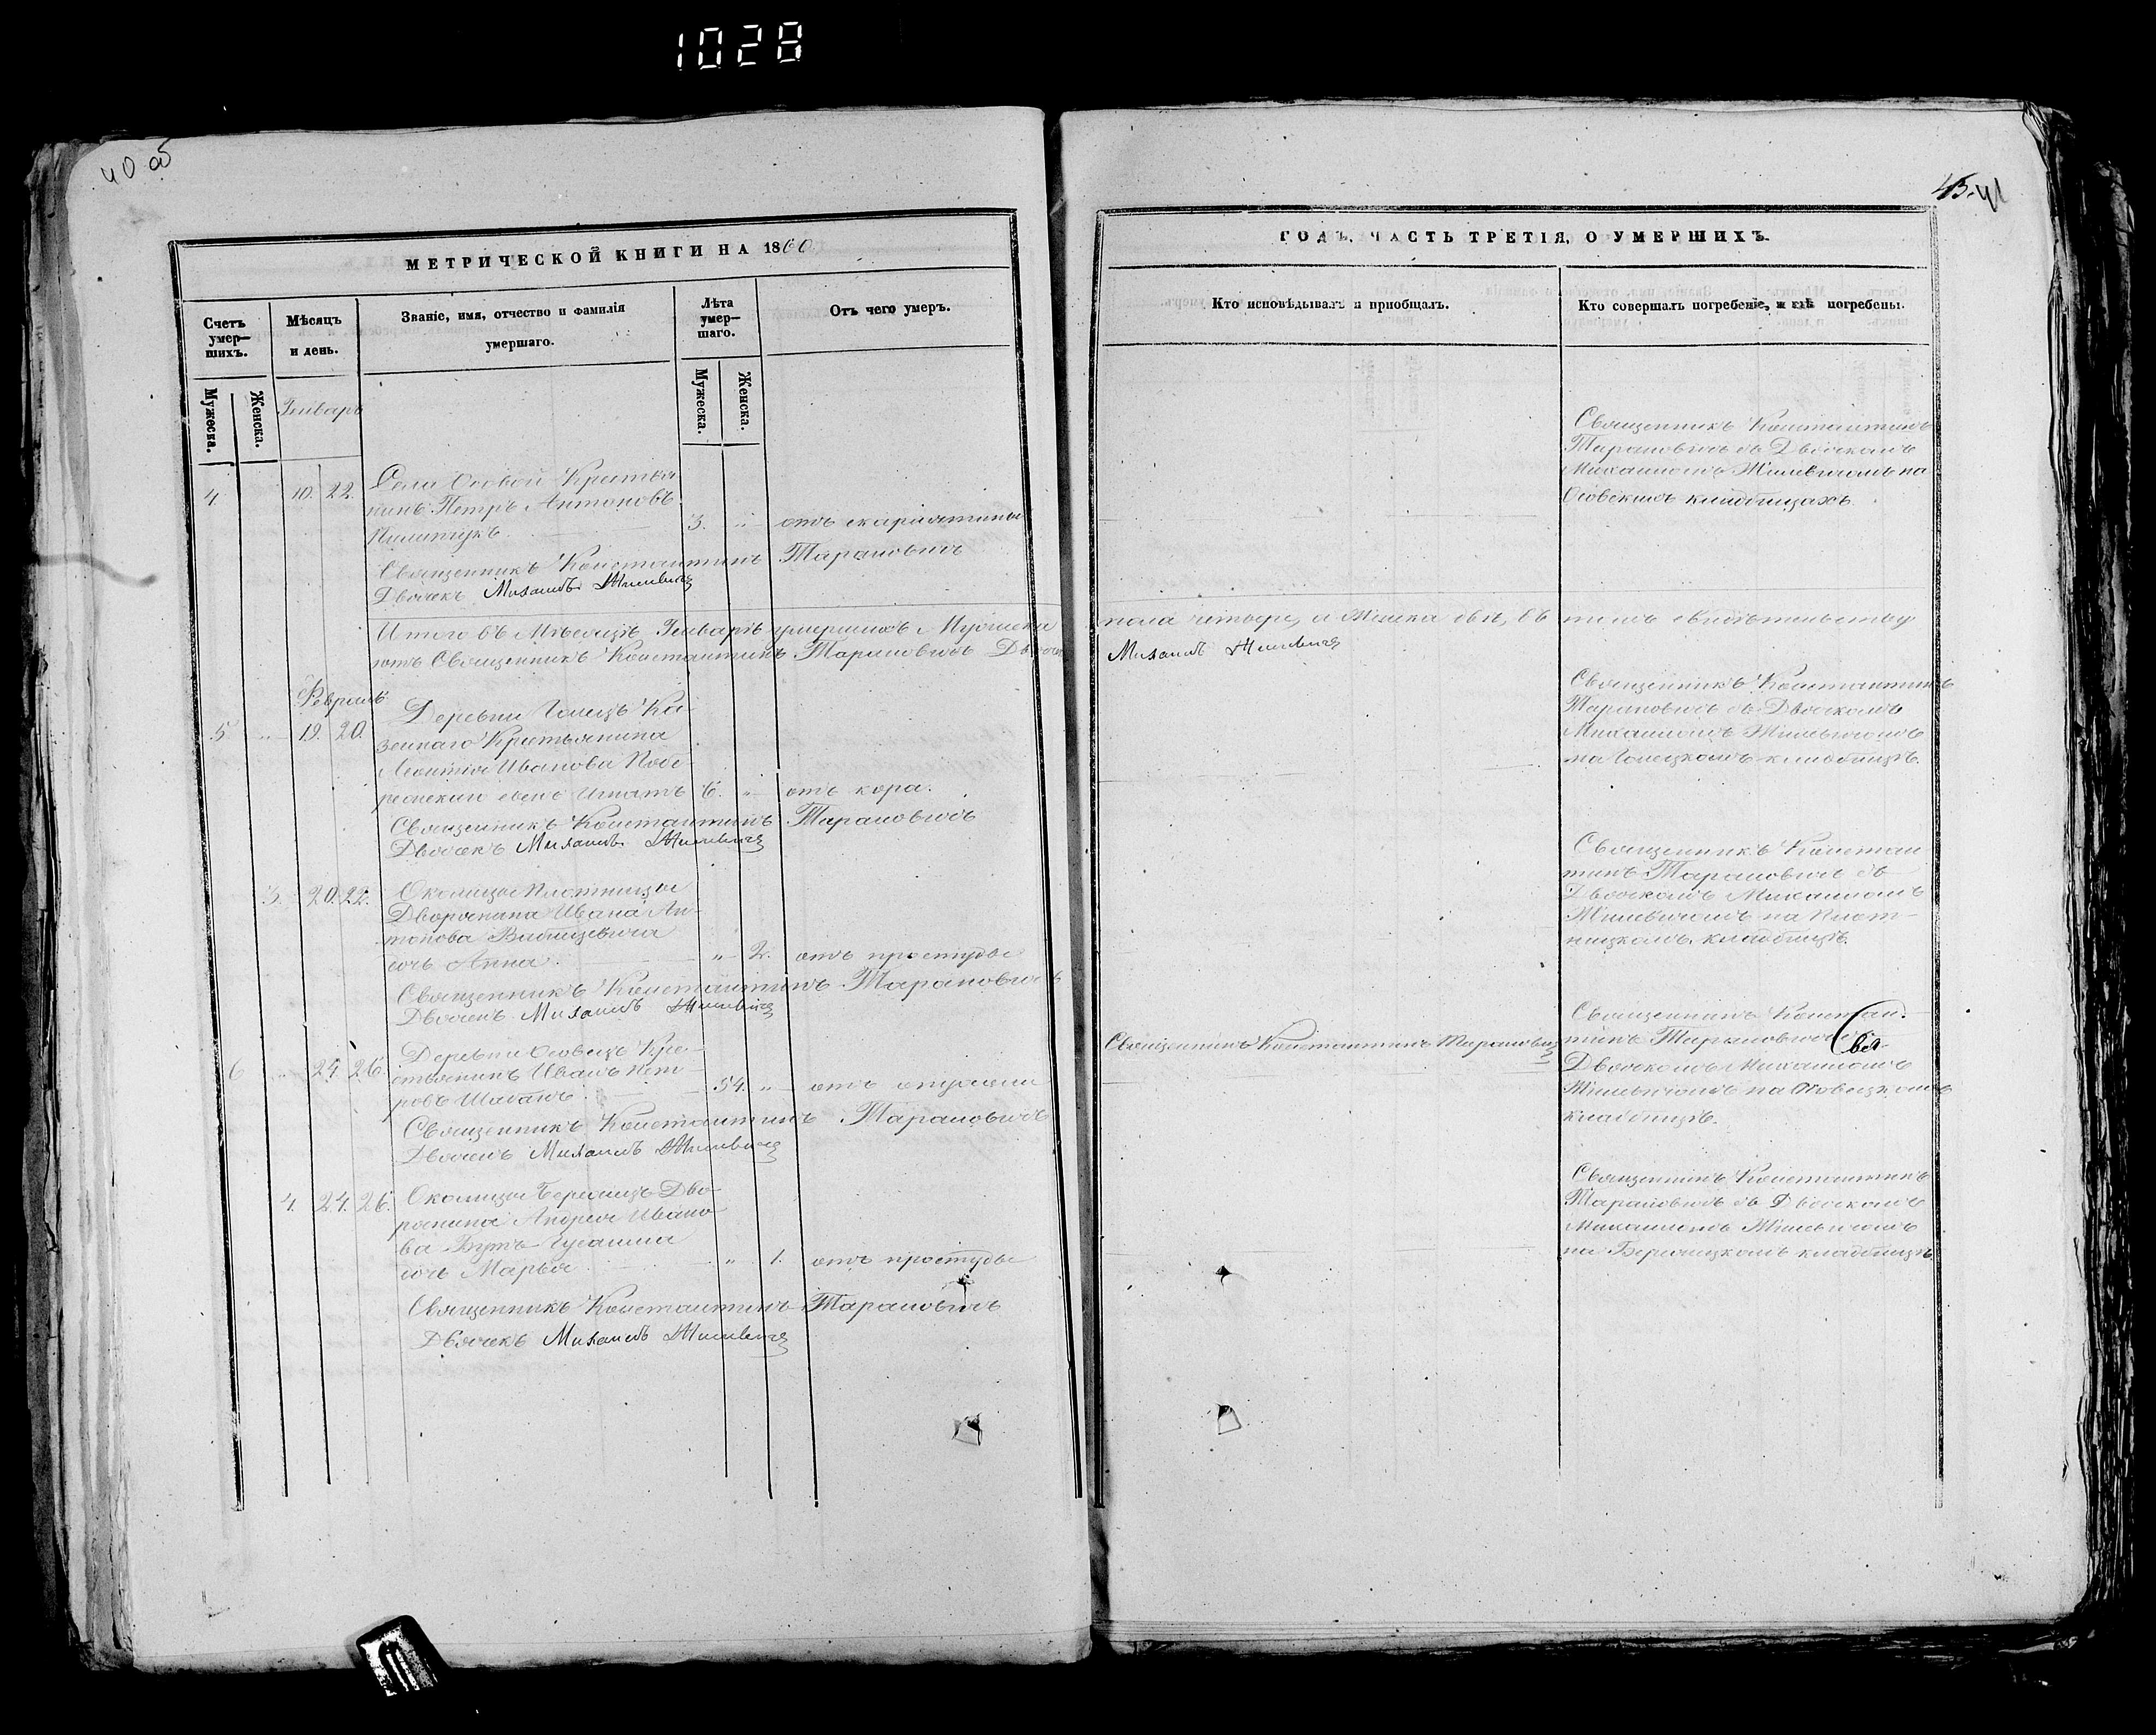 1028
40 об
МЕТРИЧЕСКОЙ КНИГИ НА 1860
Счетъ умер—шихъ.
Мѣсяцъ и день.
Званіе, имя, отчество и фамилія умершаго.
Лѣта умер—шаго.
Отъ чего умеръ.
Мужеска.
Женска.
Мужеска.
Женска.
Генварь
4.
10. 22.
Села Осовой Крестья
нинъ Петръ Антоновъ
Пилипчукъ.
3. „
отъ скарлатины
Священникъ Константинъ Тарановичъ
Дьячекъ Михаилъ Жилевичъ
Итого въ Мѣсяцѣ Генварѣ умершихъ Мужеска
ютъ Священникъ Константинъ Тарановичъ Дьячекъ
Февраль
5 „ 19. 20.
Деревни Голецъ Ка-
зеннаго Крестьянина
Леонтія Иванова
сынъ Игнатъ 6. „ отъ кора.
Священникъ Константинъ Тарановичъ
Дьячекъ Михаилъ Жилевичъ
3. 20. 22.
Околицы Плотницы
Дворянина Ивана Ан-
тонова
дочь Анна. „ 2. отъ простуды
Священникъ Константинъ Тарановичъ
Дьячекъ Михаилъ Жилевичъ
6 „ 24. 26.
Деревни Осовецъ Кре-
стьянинъ Иванъ Пет-
ровъ Шабанъ. 54. „ отъ
Священникъ Константинъ Тарановичъ
Дьячекъ Михаилъ Жилевичъ
4. 24. 26.
Околицы Берсницъ Дво-
рянина Андрея Ивано
ва Бутъ-Гусаима
дочь Марья. „ 1. отъ простуды
Священникъ Константинъ Тарановичъ
Дьячекъ Михаилъ Жилевичъ
41
ГОДЪ, ЧАСТЬ ТРЕТІЯ, О УМЕРШИХЪ.
Кто исповѣдывалъ и пріобщалъ.
Кто совершалъ погребеніе, и гдѣ погребены.
Священникъ Константинъ
Тарановичъ съ Дьячкомъ
Михаиломъ Жилевичомъ на
Осовскихъ кладбищахъ.
пола четыре, а Женска двѣ, въ томъ свидѣтельству
Михаилъ Жилевичъ
Священникъ Константинъ
Тарановичъ съ Дьячкомъ
Михаиломъ Жилевичомъ
на Голецкомъ кладбищѣ.
Священникъ Констан
тинъ Тарановичъ съ
Дьячкомъ Михаиломъ
Жилевичомъ на Плот-
ницкомъ кладбищѣ.
Священникъ Константинъ Тарановичъ
Священникъ Констан-
тинъ Тарановичъ
Дьячкомъ Михаиломъ
Жилевичомъ на Осовецкомъ
кладбищѣ.
Священникъ Константинъ
Тарановичъ съ Дьячкомъ
Михаиломъ Жилевичомъ
на Берсницкомъ кладбищѣ